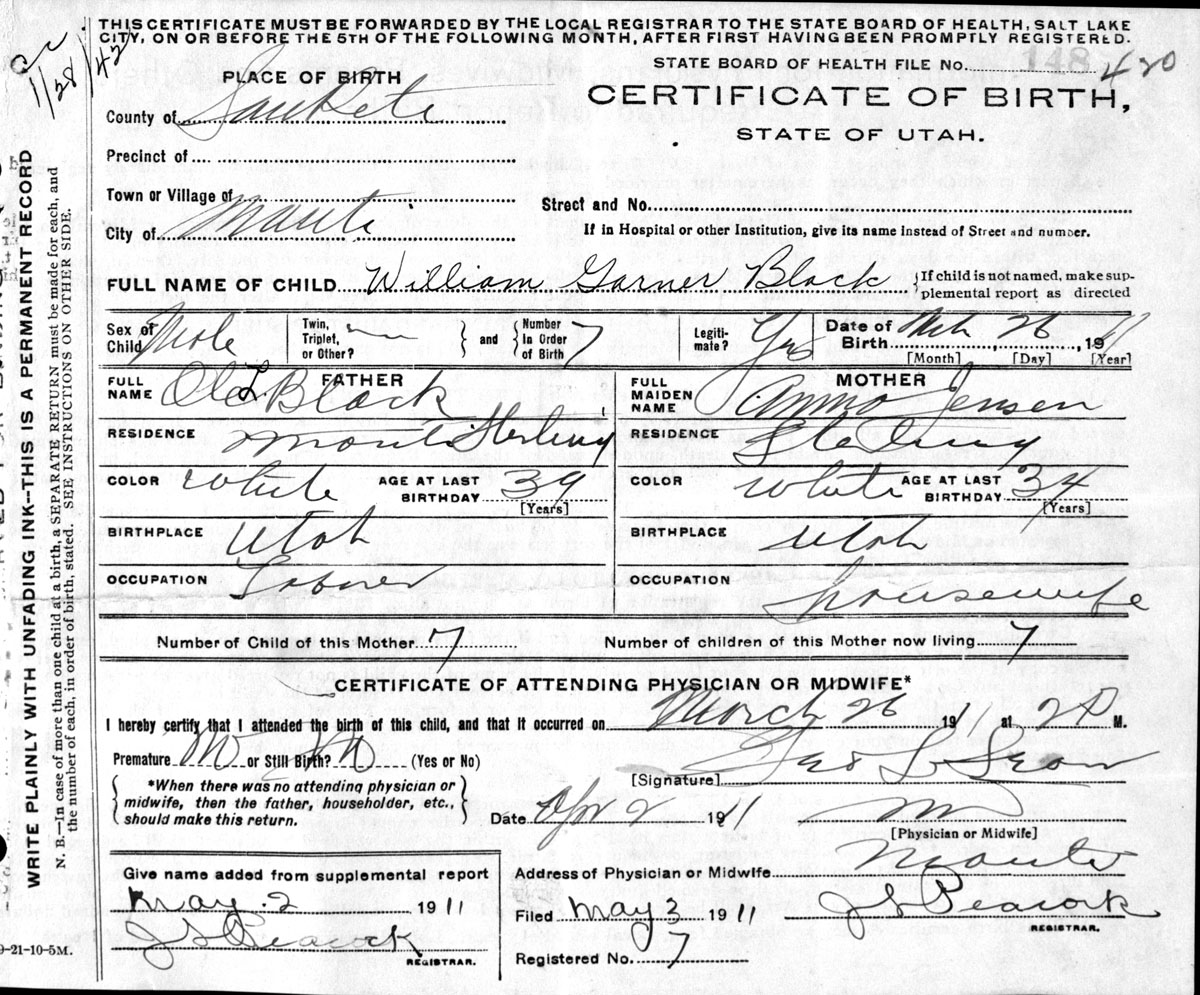 THIS CERTIFICATE MUST BE FORWARDED BY THE LOCAL REGISTRAR TO THE STATE BOARD OF HEALTH, SALT LAKE
CITY, ON OR BEFORE THE 5TH OF THE FOLLOWING MONTH, AFTER FIRST HAVING BEEN PROMPTLY REGISTERED.
1/28/42
STATE BOARD OF HEALTH FILE NO. 148 420
PLACE OF BIRTH
CERTIFICATE OF BIRTH,
STATE OF UTAH.
County of SanPete
Precinct of
Town or Village of
Street and No.
City of Manti
If in Hospital or other Institution, give its name instead of Street and number.
FULL NAME OF CHILD William Garner Black {If child is not named, make sup-
plemental report as directed
Sex of Child Male
Twin, Triplet, or Other? — } and { Number In Order of Birth 7
Legiti- mate? Yes
Date of Birth Mch 26, 1911
[Month] [Day] [Year]
FULL NAME FATHER Ole L. Black
FULL MAIDEN NAME MOTHER Anna Jensen
RESIDENCE Manti Sterling
RESIDENCE Sterling
COLOR White AGE AT LAST BIRTHDAY 39 [Years]
COLOR White AGE AT LAST BIRTHDAY 34 [Years]
BIRTHPLACE Utah
BIRTHPLACE Utah
OCCUPATION Laborer
OCCUPATION housewife
Number of Child of this Mother 7
Number of children of this Mother now living 7
CERTIFICATE OF ATTENDING PHYSICIAN OR MIDWIFE*
I hereby certify that I attended the birth of this child, and that it occurred on March 26 1911 at 2 P M.
Premature No or Still Birth? No (Yes or No)
[Signature]
*When there was no attending physician or
midwife, then the father, householder, etc.,
should make this return.
Date Apr 2 1911
[Physician or Midwife]
Give name added from supplemental report
May 2 1911
J S Peacock
REGISTRAR.
Address of Physician or Midwife Manti
Filed May 3 1911 J S Peacock
REGISTRAR.
Registered No. 7
9-21-10-5M.
WRITE PLAINLY WITH UNFADING INK--THIS IS A PERMANENT RECORD
N. B.—In case of more than one child at a birth a SEPARATE RETURN must be made for each, and
the number of each, in order of birth, stated. SEE INSTRUCTIONS ON OTHER SIDE.